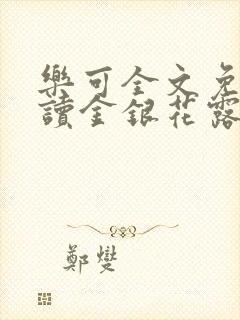 樂可全文免
讀金銀花露
鄭燮